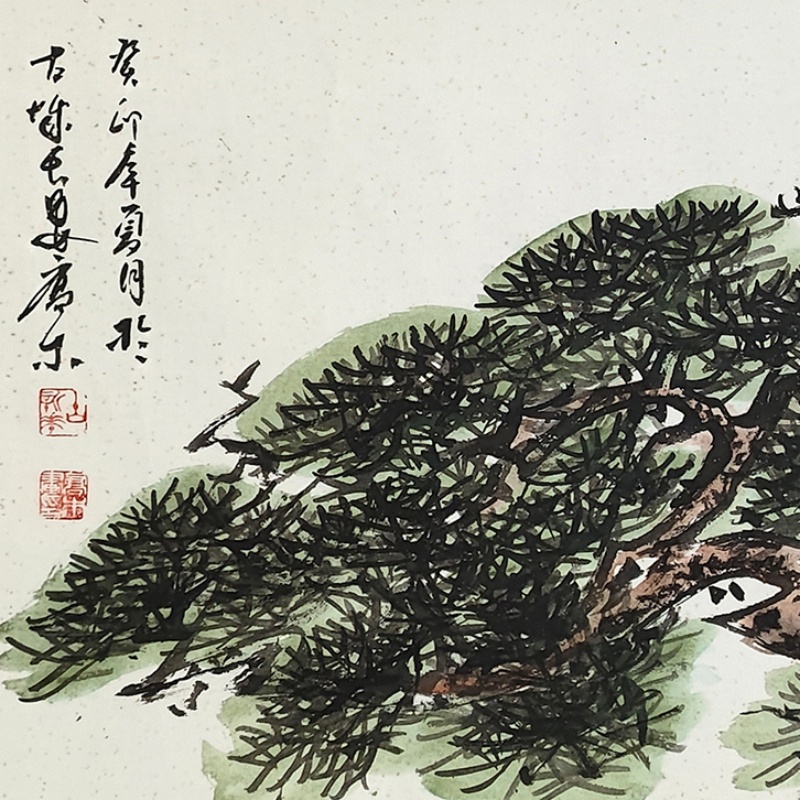 癸卯年夏月於
古城長安高